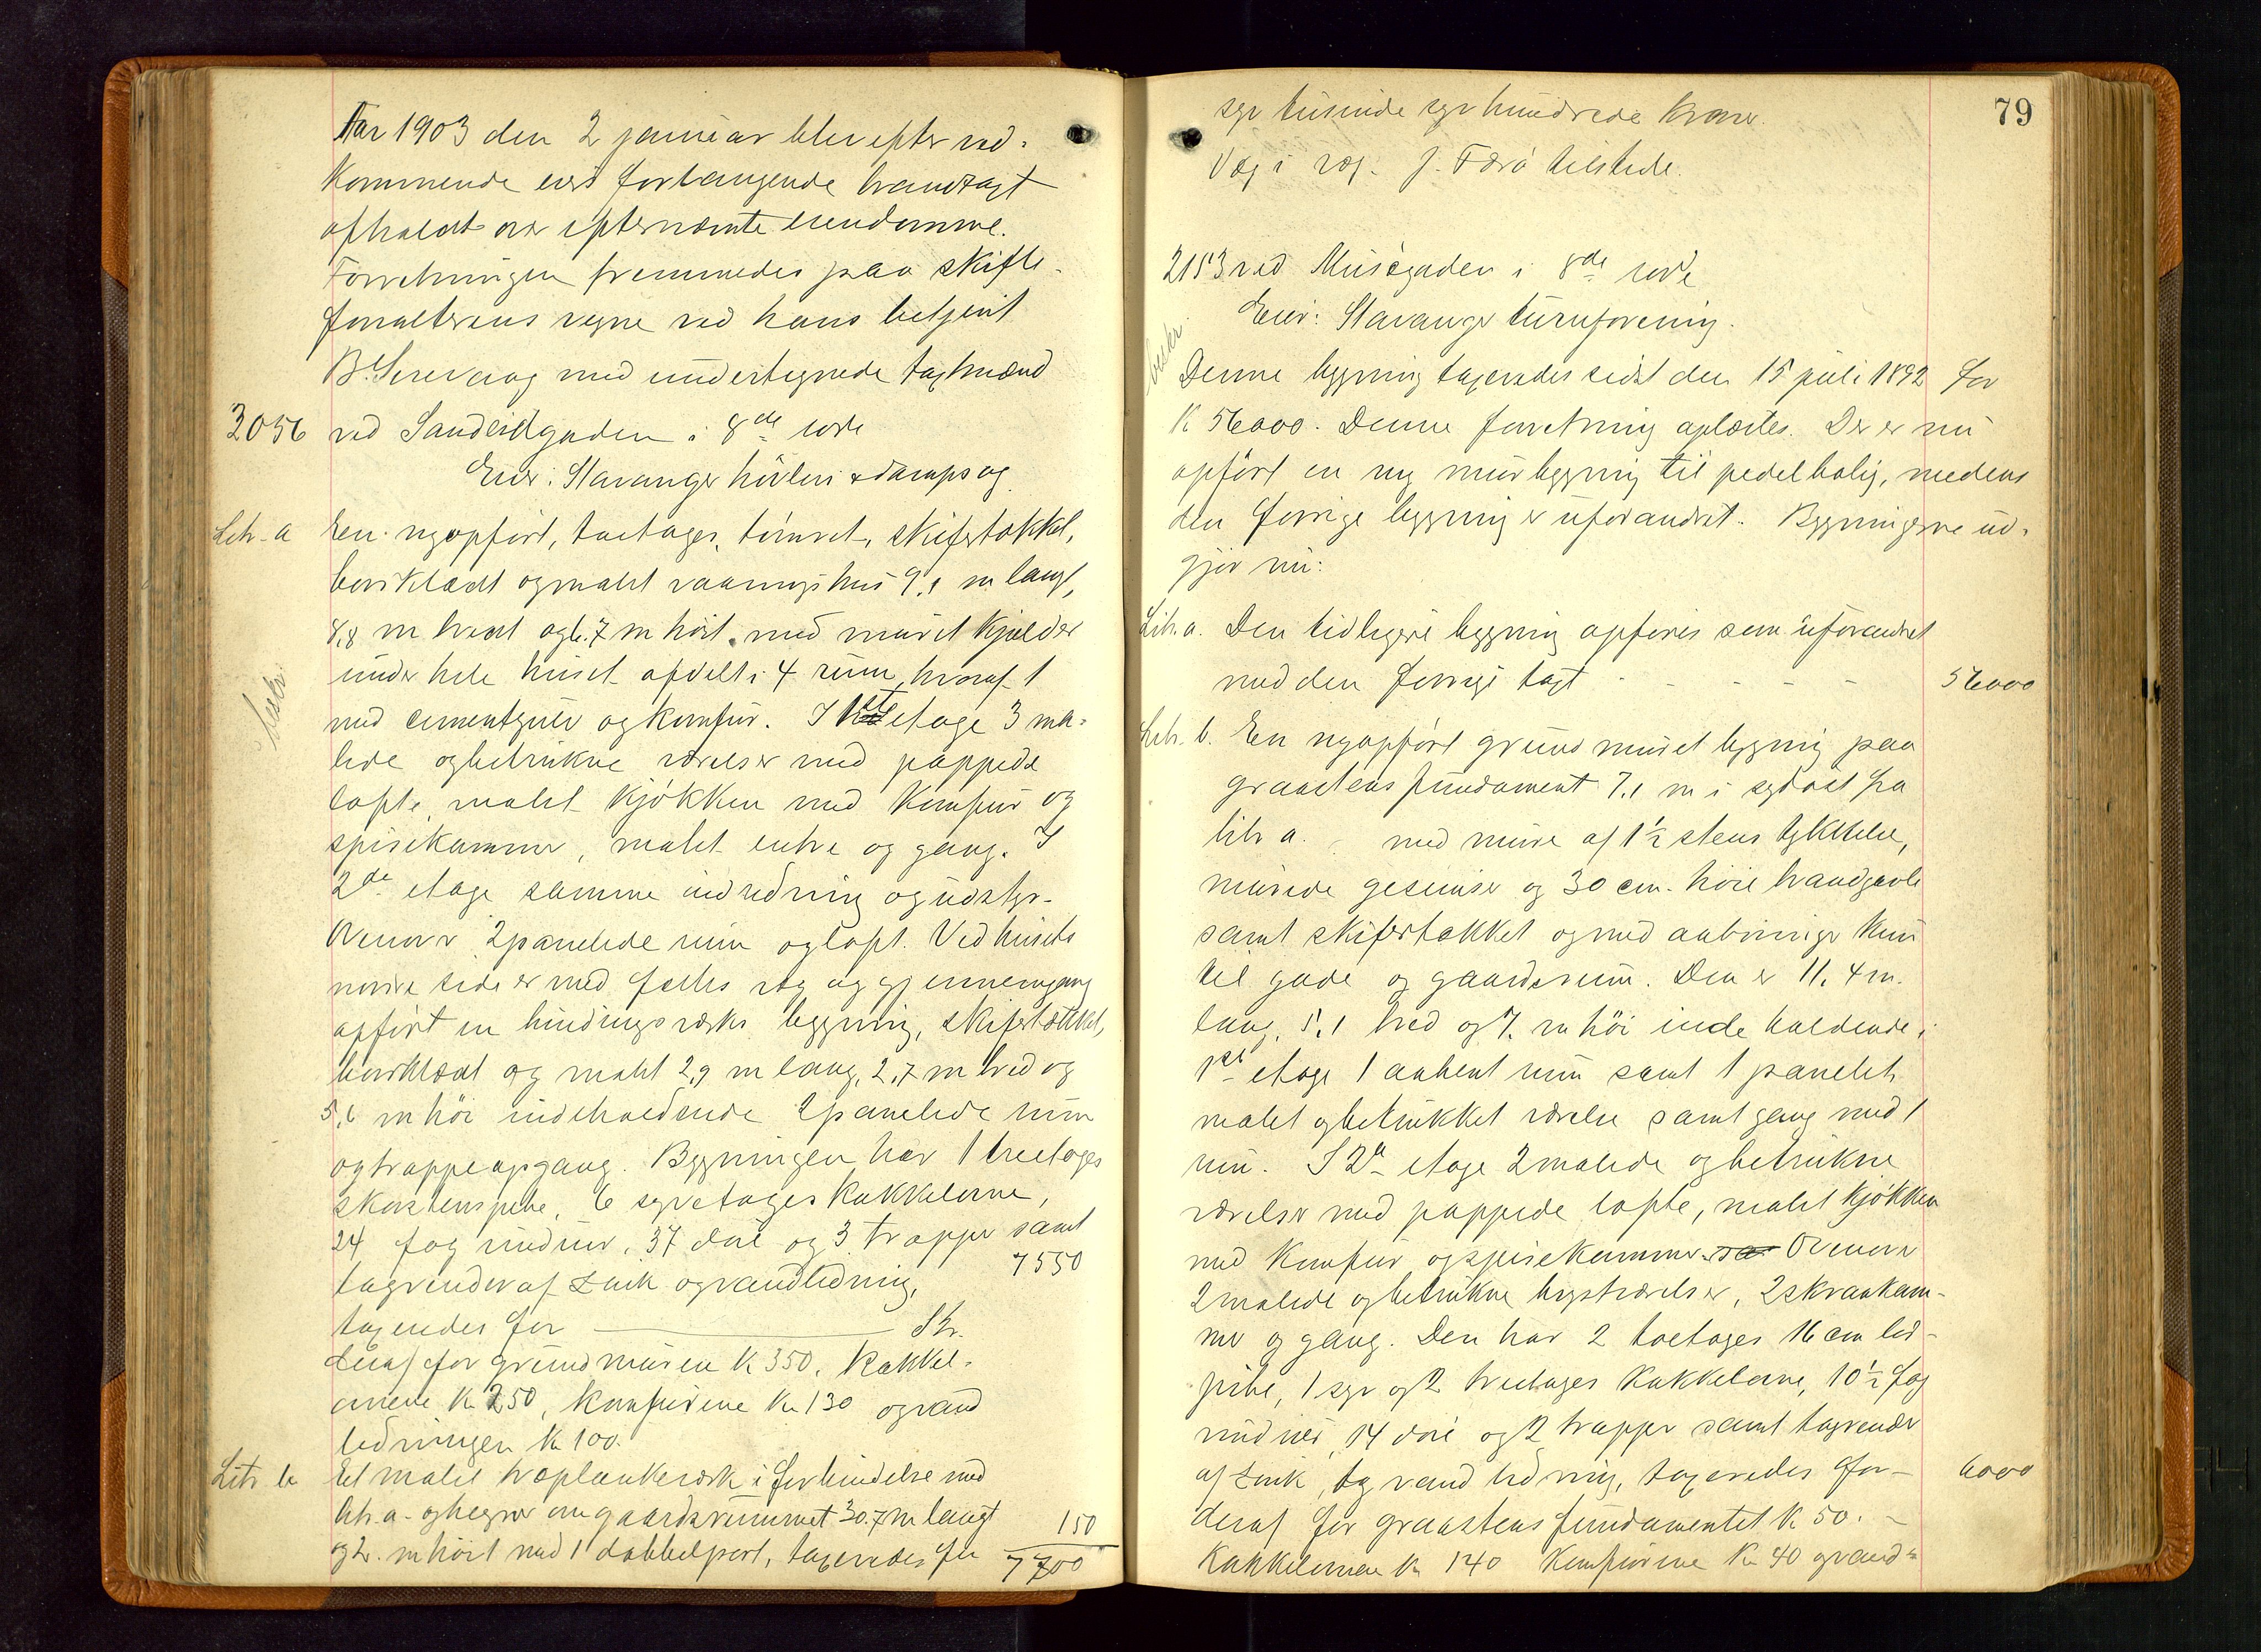 Aar 1903 den 2 januar blev efter ved-
kommende eiers forlangende brandtaxt
afholdt over efternævnte eiendomme.
Forretningen fremmedes paa skifte-
forvalterens vegne ved hans betjent
B. Serevaag med undertegnede taxtmænd
3056 ved Sandeidgaden i 8de rode
Eier: Stavanger høvleri & dampsag
Litr. a En nyopført, toetages, tømret, skifertækket,
bordklædt og malet vaaningshus 9,1 m langt,
8,8 m bredt og 6.7 m høit med muret kjælder
under hele huset afdelt i 4 rum, hvoraf 1
med cementgulv og komfur. I 1ste etage 3 ma-
lede og betrukne værelser med pappede
lofte, malet kjøkken med komfur og
spisekammer, malet entre og gang. I
2de etage samme indredning og udstyr.
Ovenover 2 panelede rum og loft. Ved husets
nordre side er med fælles væg og gjennemgang
opført en bindingsværks bygning, skifertækket,
bordklædt og malet 2,9 m lang, 2,7 m bred og
5,6 m høi indeholdende 2 panelede rum
og trappeopgang. Bygningen har 1 treetages
skorstenspibe, 6 syvetages kakkelovne,
24 fag vinduer, 37 døre og 3 trapper samt
tagrender af zink og vandledning, 7550
taxeredes for Kr.
deraf for grundmuren K 350, kakkel-
ovnene Kr 250, komfurene Kr 130 og vand
ledningen Kr 100.
Litr. b Et malet træplankeværk i forbindelse med
litr. a og hegner om gaardsrummet 30.7 m langt 150
og 2. m høit med 1 dobbeltport, taxeredes for 7700
79
syv tusinde syv hundrede kroner.
Vog i vog. J. Færø tilstede.
2153 ved Muségaden i 8de rode
Eier: Stavanger turnforening.
Denne bygning taxeredes sidst den 15 juli 1892 for
K 56000. Denne forretning oplæstes. Der er nu
opført en ny murbygning til pedelbolig, medens
den forrige bygning er uforandret. Bygningerne ud-
gjør nu:
Litr. a. Den tidligere bygning opføres som uforandret
med den forrige taxt - - - - - 56000
Litr. b. En nyopført grundmuret bygning paa
graastens fundament 7,1 m i sydost fra
litr a. med mure af 1½ stens tykkelse,
murede gesimser og 30 cm. høie brandgavle
samt skifertækket og med aabninger kun
til gade og gaardsrum. Den er 11,4 m.
lang, 5,1 bred og 7. m høi inde holdende i
1ste etage 1 aabent rum samt 1 panelet
malet og betrukket værelse samt gang med 1
rum. I 2den etage 2 malede og betrukne
værelser med pappede lofte, malet kjøkken
med komfur og spisekammer. Ovenover
2 malede og betrukne kvistværelser, 2 skraakam-
mer og gang. Den har 2 toetages 16 cm led-
pibe, 1 syv og 2 treetages kakkelovne, 10½ fag
vinduer, 14 døre og 2 trapper samt tagrender
af zink, og vandledning, taxeredes for - 6000
deraf for graastensfundamentet K 50. -
Kakkelovnene Kr 140 Komfurene Kr 40 og vand-